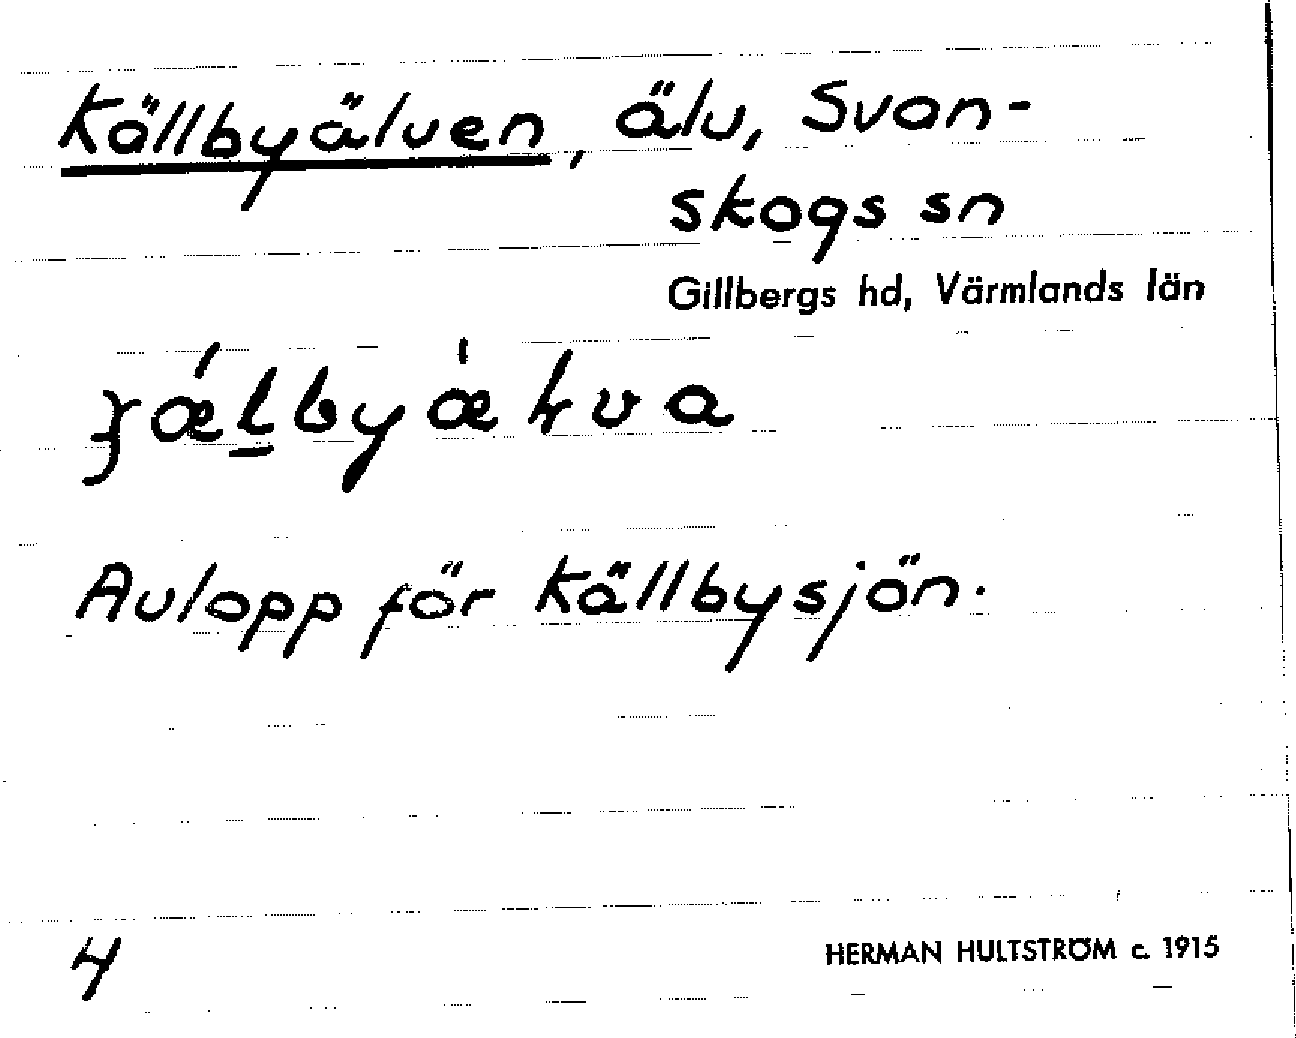 Källbyälven, älv, Svan-
skogs sn
Gillbergs hd, Värmlands län
Avlopp för Källbysjön.
4
HERMAN HULTSTRÖM c. 1915